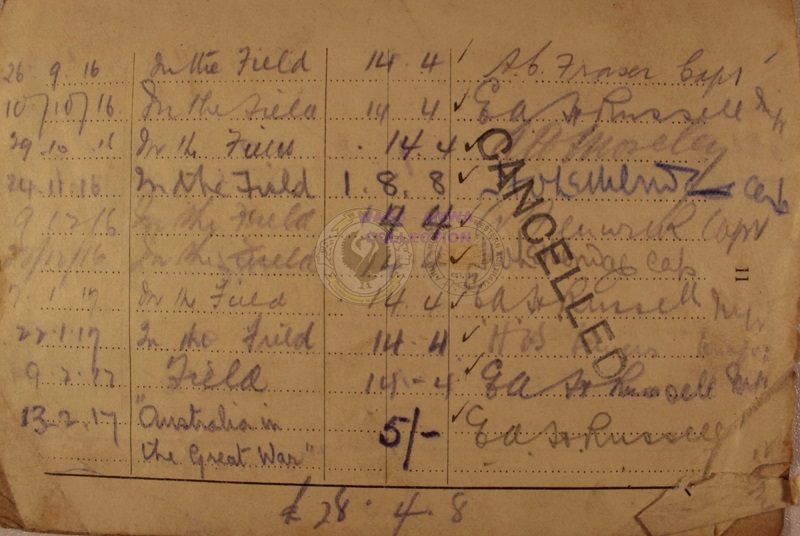 26 9.16 In the Field 14 4 A.G. Fraser Capt
10/10/16 In the Field 14 4 E A H Russell Mjr
29.10.16 In the Field 14 4 Moseley
24.11.16 In the Field 1.8.8 Capt
9.12.16 In the Field 14 4 Capt
In the Field 14 4 Cap
7.1.17 In the Field 14 4 E A H Russell Mjr
22.1.17 In the Field 14 4
9.2.17 Field 14-4 E A H Russell Mjr
13.2.17 "Australia in 5/- E A H Russell
the Great War"
£28.4.8
CANCELLED
11
COLLECTION